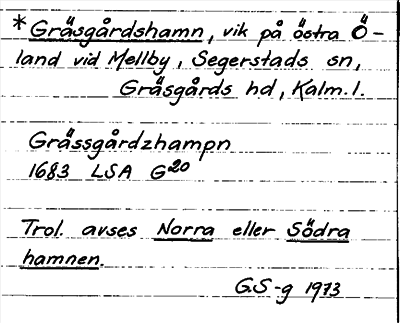 *Gräsgårdshamn, vik på östra Ö-
land vid Mellby, Segerstads sn,
Gräsgårds hd, Kalm. l.
Grässgårdzhampn
1683 LSA G20
Trol. avses Norra eller Södra
hamnen.
G.S-g 1973